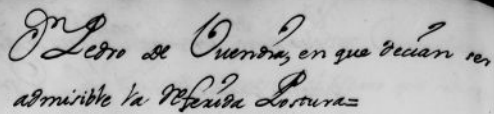 Dn Pedro de Vuendia, en que decian ser
admisible la referida Postura=